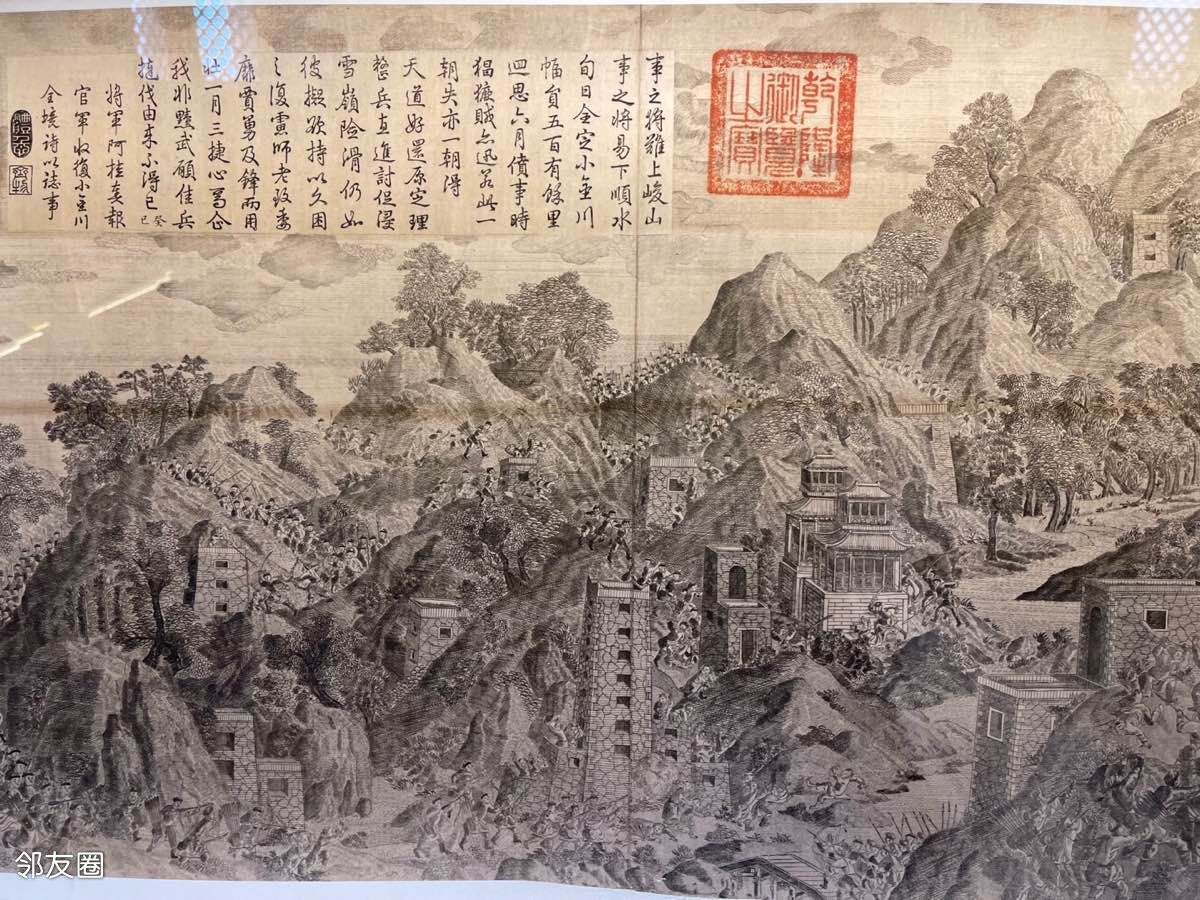 事之將難上峻山
事之將易下順水
旬日全定小金川
幅員五百有餘里
迴思六月僨事時
猖獗賊亦迅若此一
朝失亦一朝得
天道好還原定理
整兵直進討促浸
雪嶺險滑仍如
彼擬欲持以久困
之復慮師老致委
靡賈勇及鋒而用
壯一月三捷心焉企
我非黷武願佳兵
撻伐由来不得已癸巳
將軍阿桂奏報
官軍收復小金川
全境詩以誌事
乾隆御覽之寶
邻友圈